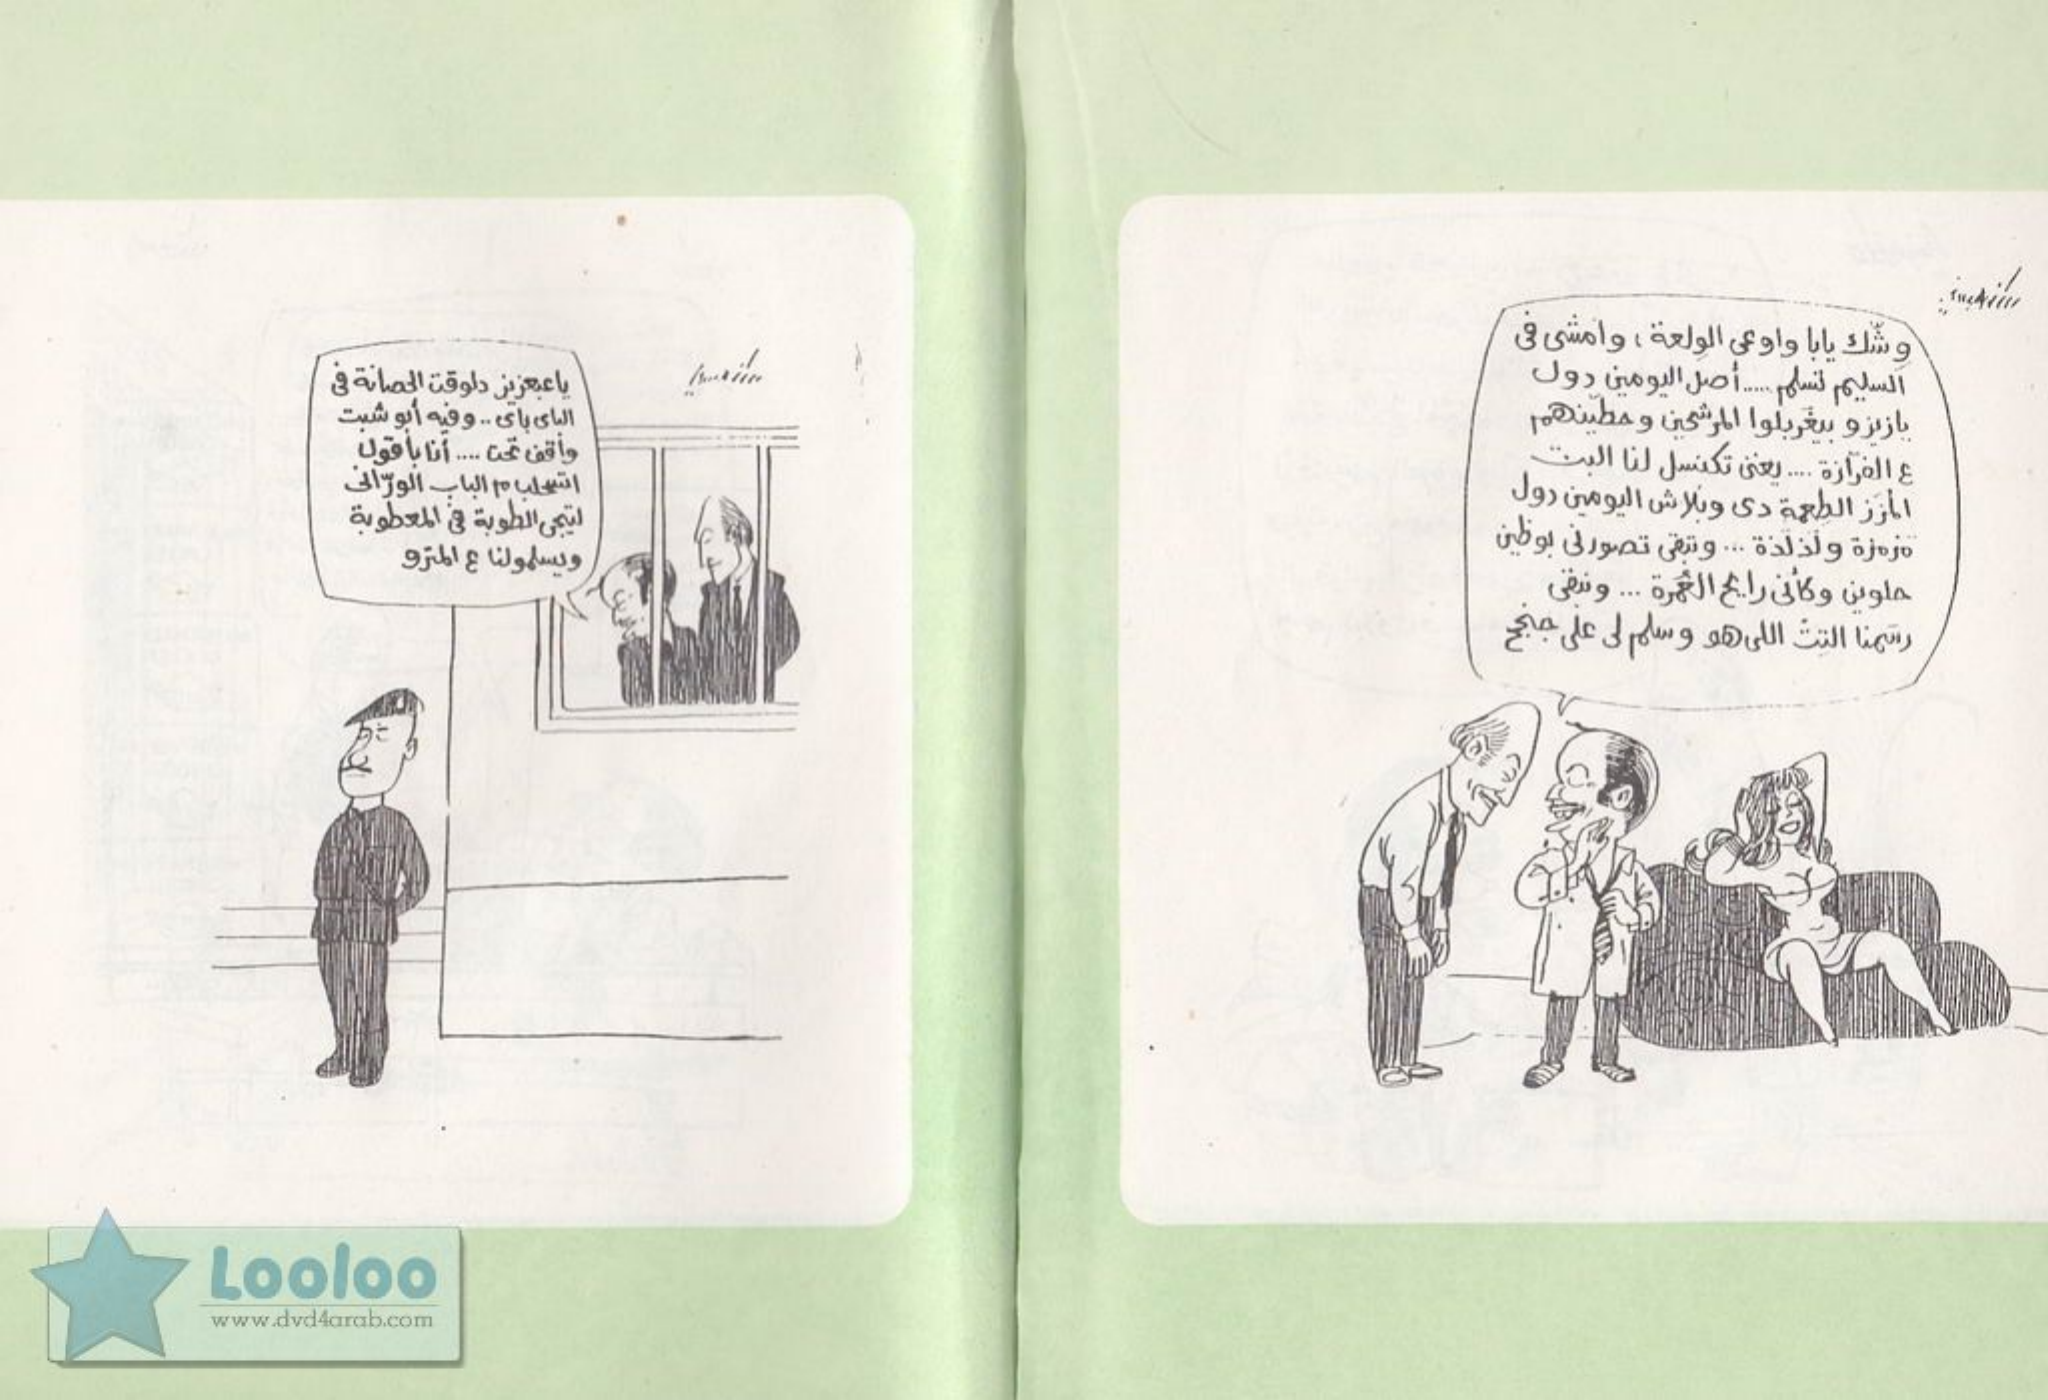 وشّك يابا واوعى الولعة ، وامشى فى
السليم تسلم ..... أصل اليومين دول
يازيزو بيغربلوا المرشحين وحطينهم
ع الفرازة .... يعنى تكنسل لنا البت
المزز الطعمة دى وبلاش اليومين دول
مزمزة ولذلذة ... وتبقى تصورنى بوظين
حلوين وكأنى رايح العُمرة ... ونبقى
رسمنا التِتْ اللى هو وسلم لى على جنجح
ياعبعزيز دلوقت الحصانة فى
الباى باى .. وفيه أبو شبت
واقف تحت .... أنا بأقول
اتسحلب م الباب الورّانى
لتيجى الطوبة فى المعطوبة
ويسلمولنا ع المترو
Looloo
www.dvd4arab.com